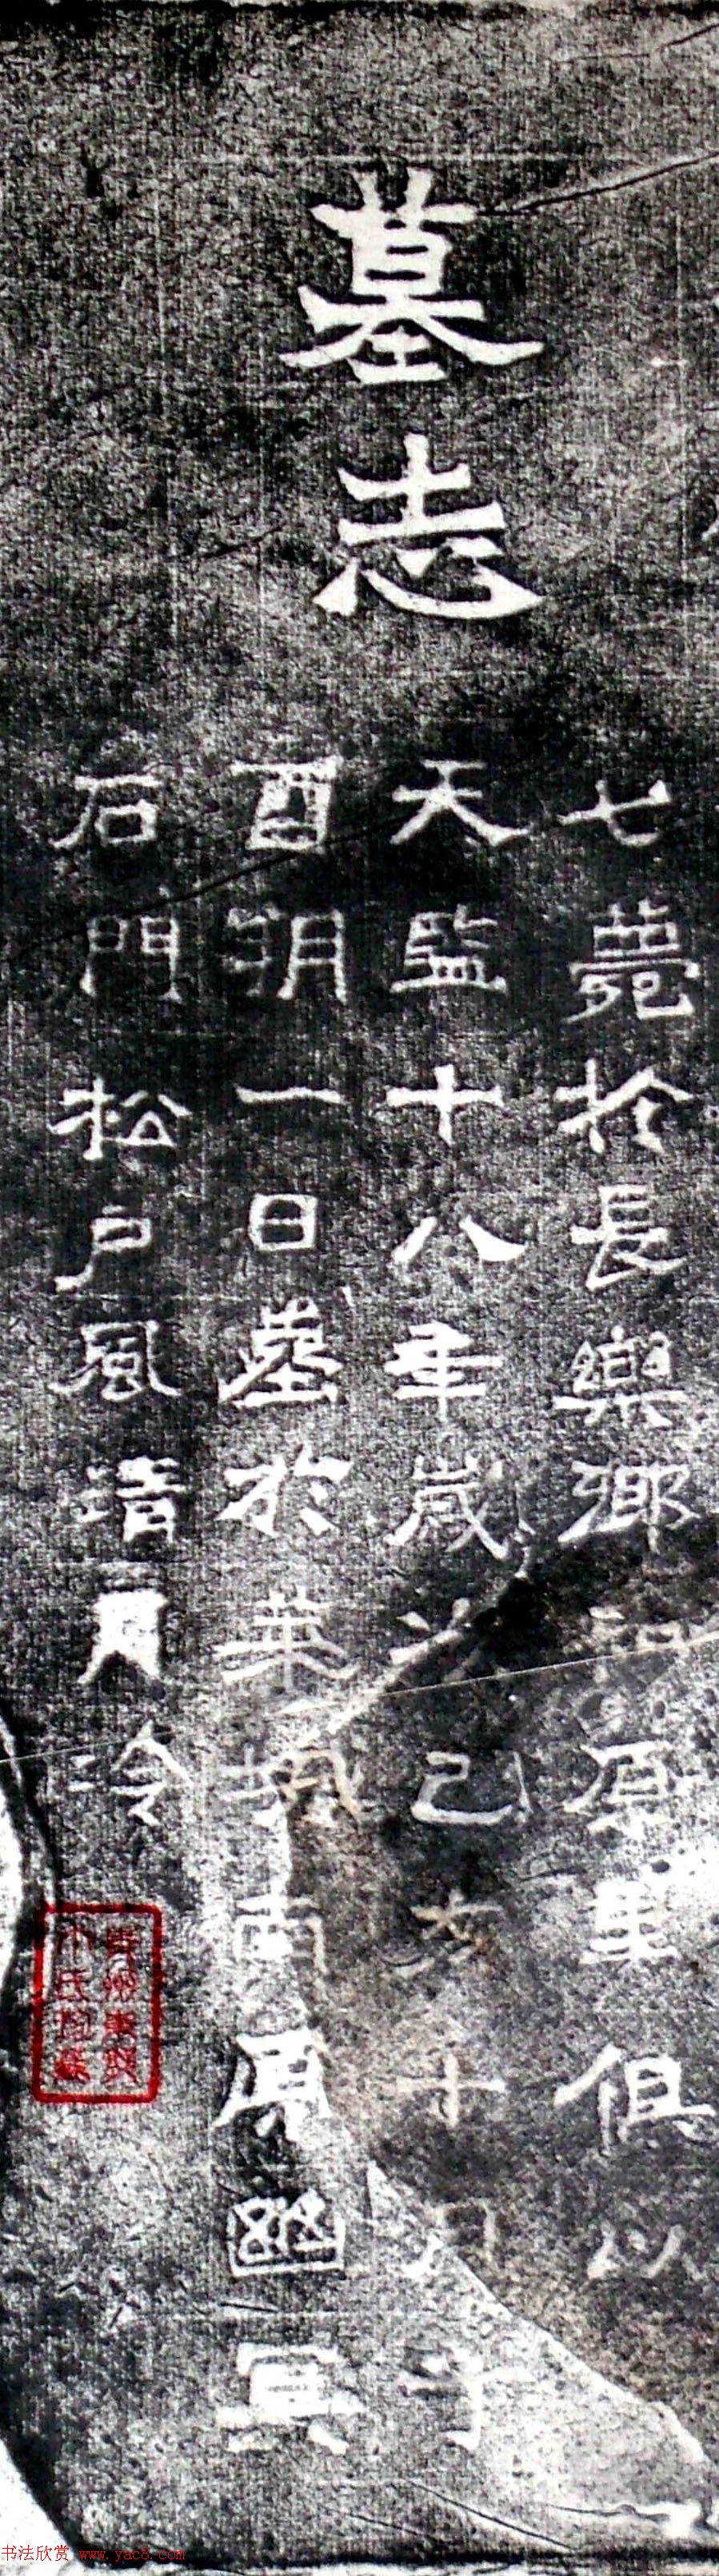 墓志
七薨於長樂鄉和原里俱以
天監十八年歲次己亥十月丁
酉朔一日葬於華城南原幽冥
石門松戶風清夏冷
书法欣赏 www.yac8.com